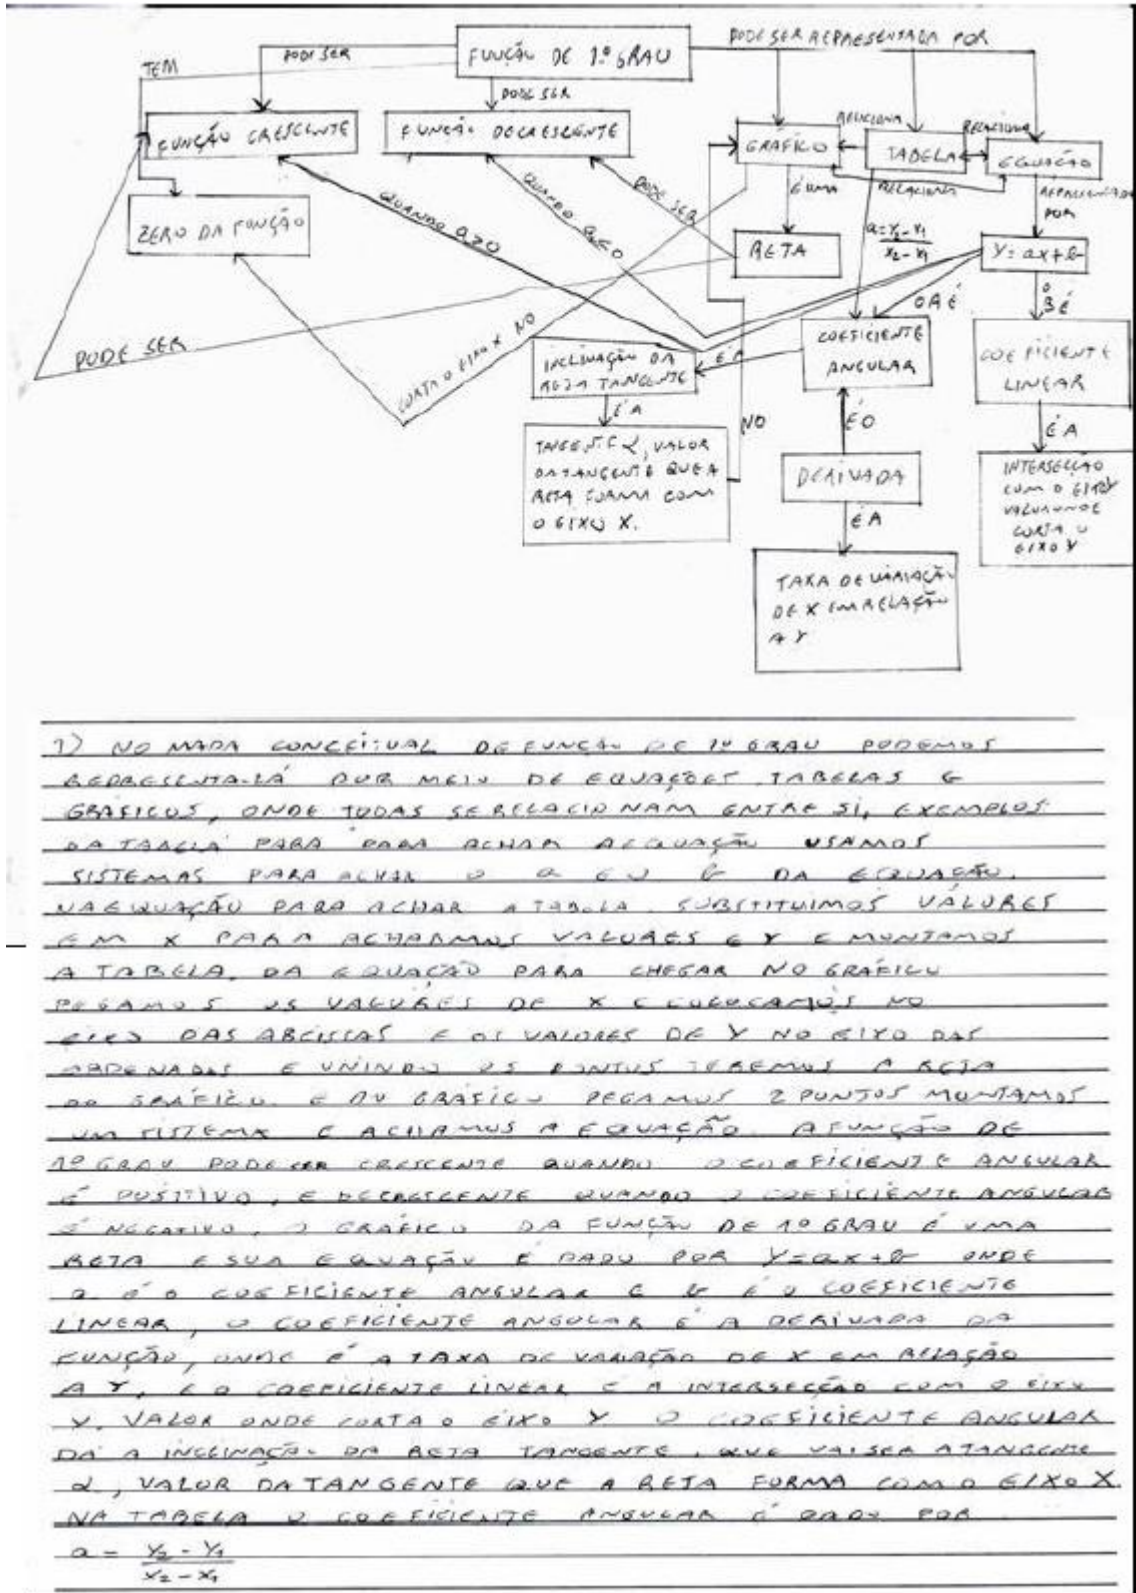 FUNÇÃO DE 1º GRAU
PODE SER REPRESENTADA POR
PODE SER
TEM
PODE SER
FUNÇÃO CRESCENTE
FUNÇÃO DECRESCENTE
GRÁFICO
RELACIONA
TABELA
RELACIONA
EQUAÇÃO
É UMA
RELACIONA
REPRESENTADA
POR
ZERO DA FUNÇÃO
QUANDO a>0
QUANDO a<0
PODE SER
RETA
a = y2 - y1
x2 - x1
Y = ax + b
O a É
O
B É
PODE SER
CORTA O EIXO X NO
INCLINAÇÃO DA
RETA TANGENTE
É A
COEFICIENTE
ANGULAR
COEFICIENTE
LINEAR
É A
NO
É O
É A
TANGENTE α, VALOR
DA TANGENTE QUE A
RETA FORMA COM
O EIXO X.
DERIVADA
INTERSECÇÃO
COM O EIXO Y
VALOR ONDE
CORTA O
EIXO Y
É A
TAXA DE VARIAÇÃO
DE X EM RELAÇÃO
A Y
1) NO MAPA CONCEITUAL DE FUNÇÃO DE 1º GRAU PODEMOS
REPRESENTA-LÁ POR MEIO DE EQUAÇÕES, TABELAS E
GRÁFICOS, ONDE TODAS SE RELACIONAM ENTRE SI, EXEMPLOS
DA TABELA PARA PARA ACHAR A EQUAÇÃO USAMOS
SISTEMAS PARA ACHAR O a E O b DA EQUAÇÃO.
NA EQUAÇÃO PARA ACHAR A TABELA SUBSTITUIMOS VALORES
EM X PARA ACHARMOS VALORES E Y E MONTAMOS
A TABELA. DA EQUAÇÃO PARA CHEGAR NO GRÁFICO
PEGAMOS OS VALORES DE X E COLOCAMOS NO
EIXO DAS ABCISSAS E OS VALORES DE Y NO EIXO DAS
ORDENADAS E UNINDO OS PONTOS TEREMOS A RETA
DO GRÁFICO. E DO GRÁFICO PEGAMOS 2 PONTOS MONTAMOS
UM SISTEMA E ACHAMOS A EQUAÇÃO. A FUNÇÃO DE
1º GRAU PODE SER CRESCENTE QUANDO O COEFICIENTE ANGULAR
É POSITIVO, E DECRESCENTE QUANDO O COEFICIENTE ANGULAR
É NEGATIVO, O GRÁFICO DA FUNÇÃO DE 1º GRAU É UMA
RETA E SUA EQUAÇÃO É DADO POR Y=ax+b ONDE
a É O COEFICIENTE ANGULAR E b É O COEFICIENTE
LINEAR, O COEFICIENTE ANGULAR É A DERIVADA DA
FUNÇÃO, ONDE É A TAXA DE VARIAÇÃO DE X EM RELAÇÃO
A Y, E O COEFICIENTE LINEAR É A INTERSECÇÃO COM O EIXO
Y. VALOR ONDE CORTA O EIXO Y O COEFICIENTE ANGULAR
DÁ A INCLINAÇÃO DA RETA TANGENTE, QUE VAI SER A TANGENTE
α, VALOR DA TANGENTE QUE A RETA FORMA COM O EIXO X
NA TABELA O COEFICIENTE ANGULAR É DADO POR
a = Y2 - Y1
x2 - x1